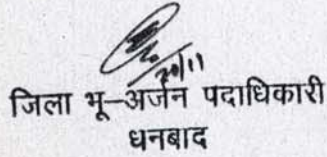 20/11
जिला भू–अर्जन पदाधिकारी
धनबाद